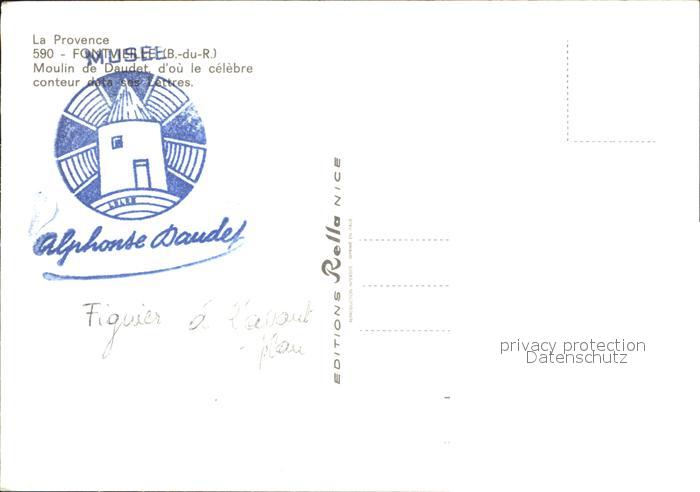 La Provence
590 - FONTVIEILLE (B.-du-R.)
Moulin de Daudet, d'où le célèbre
conteur data ses Lettres.
MUSEE
Alphonse Daudet
Figuier à l'avant
-plan
EDITIONS Rella NICE
privacy protection
Datenschutz